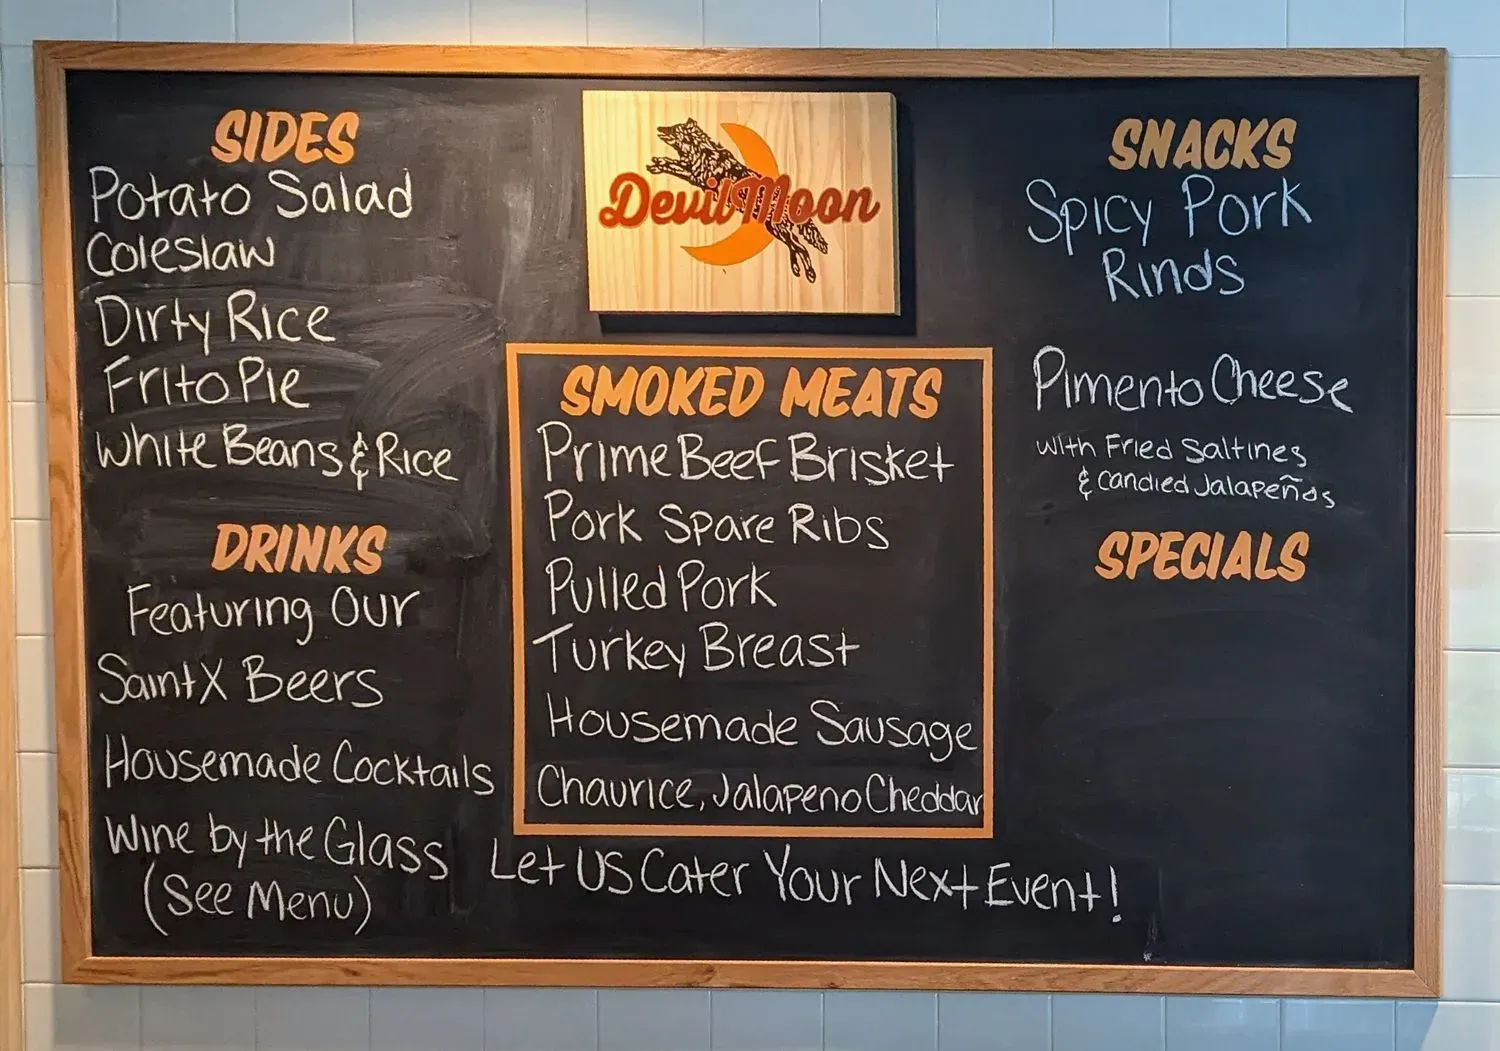 Devil Moon
SIDES
Potato Salad
Coleslaw
Dirty Rice
Frito Pie
White Beans & Rice
DRINKS
Featuring Our
Saint X Beers
Housemade Cocktails
Wine by the Glass
(See Menu)
SMOKED MEATS
Prime Beef Brisket
Pork Spare Ribs
Pulled Pork
Turkey Breast
Housemade Sausage
Chaurice, Jalapeno Cheddar
SNACKS
Spicy Pork
Rinds
Pimento Cheese
with Fried Saltines
& Candied Jalapeños
SPECIALS
Let Us Cater Your Next Event!